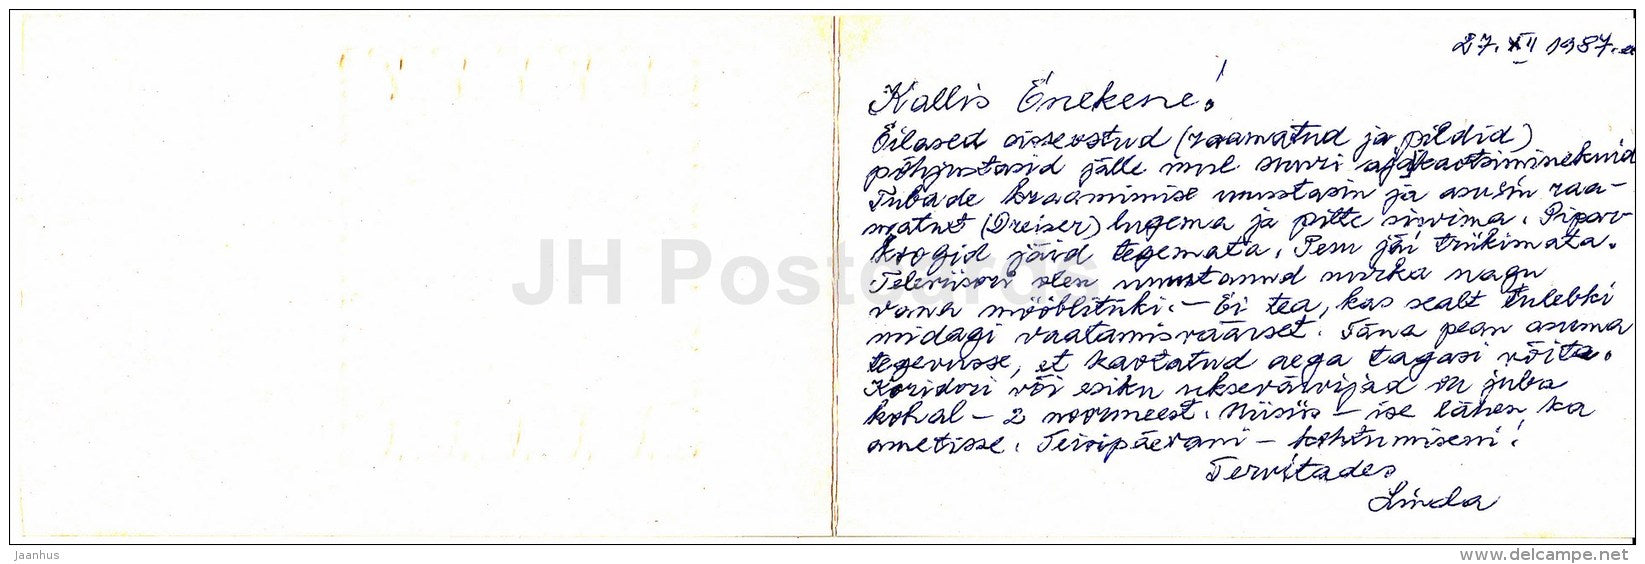 27. XII 1987.a
Kallis Enekene!
Eilased sisseostud (raamatud ja pildid)
põhjustasid jälle mul suuri ajakaotsiminekuid
Tubade kraamimise unustasin ja asusin raa-
matut (Dreiser) lugema ja pilte sirvima. Pipar
koogid jäid tegemata. Pesu jäi triikimata.
Televiisori olen unustanud nurka nagu
vana mööblitüki. - Ei tea, kas sealt tulebki
midagi vaatamisväärset. Täna pean asuma
tegevusse, et kaotatud aega tagasi võita.
Koridori või esiku uksevärvijad on juba
kohal - 2 noormeest. Niisiis - ise lähen ka
ametisse. Teisipäevani - kohtumiseni!
Tervitades
Linda
JH Postcards
Jaanhus
www.delcampe.net